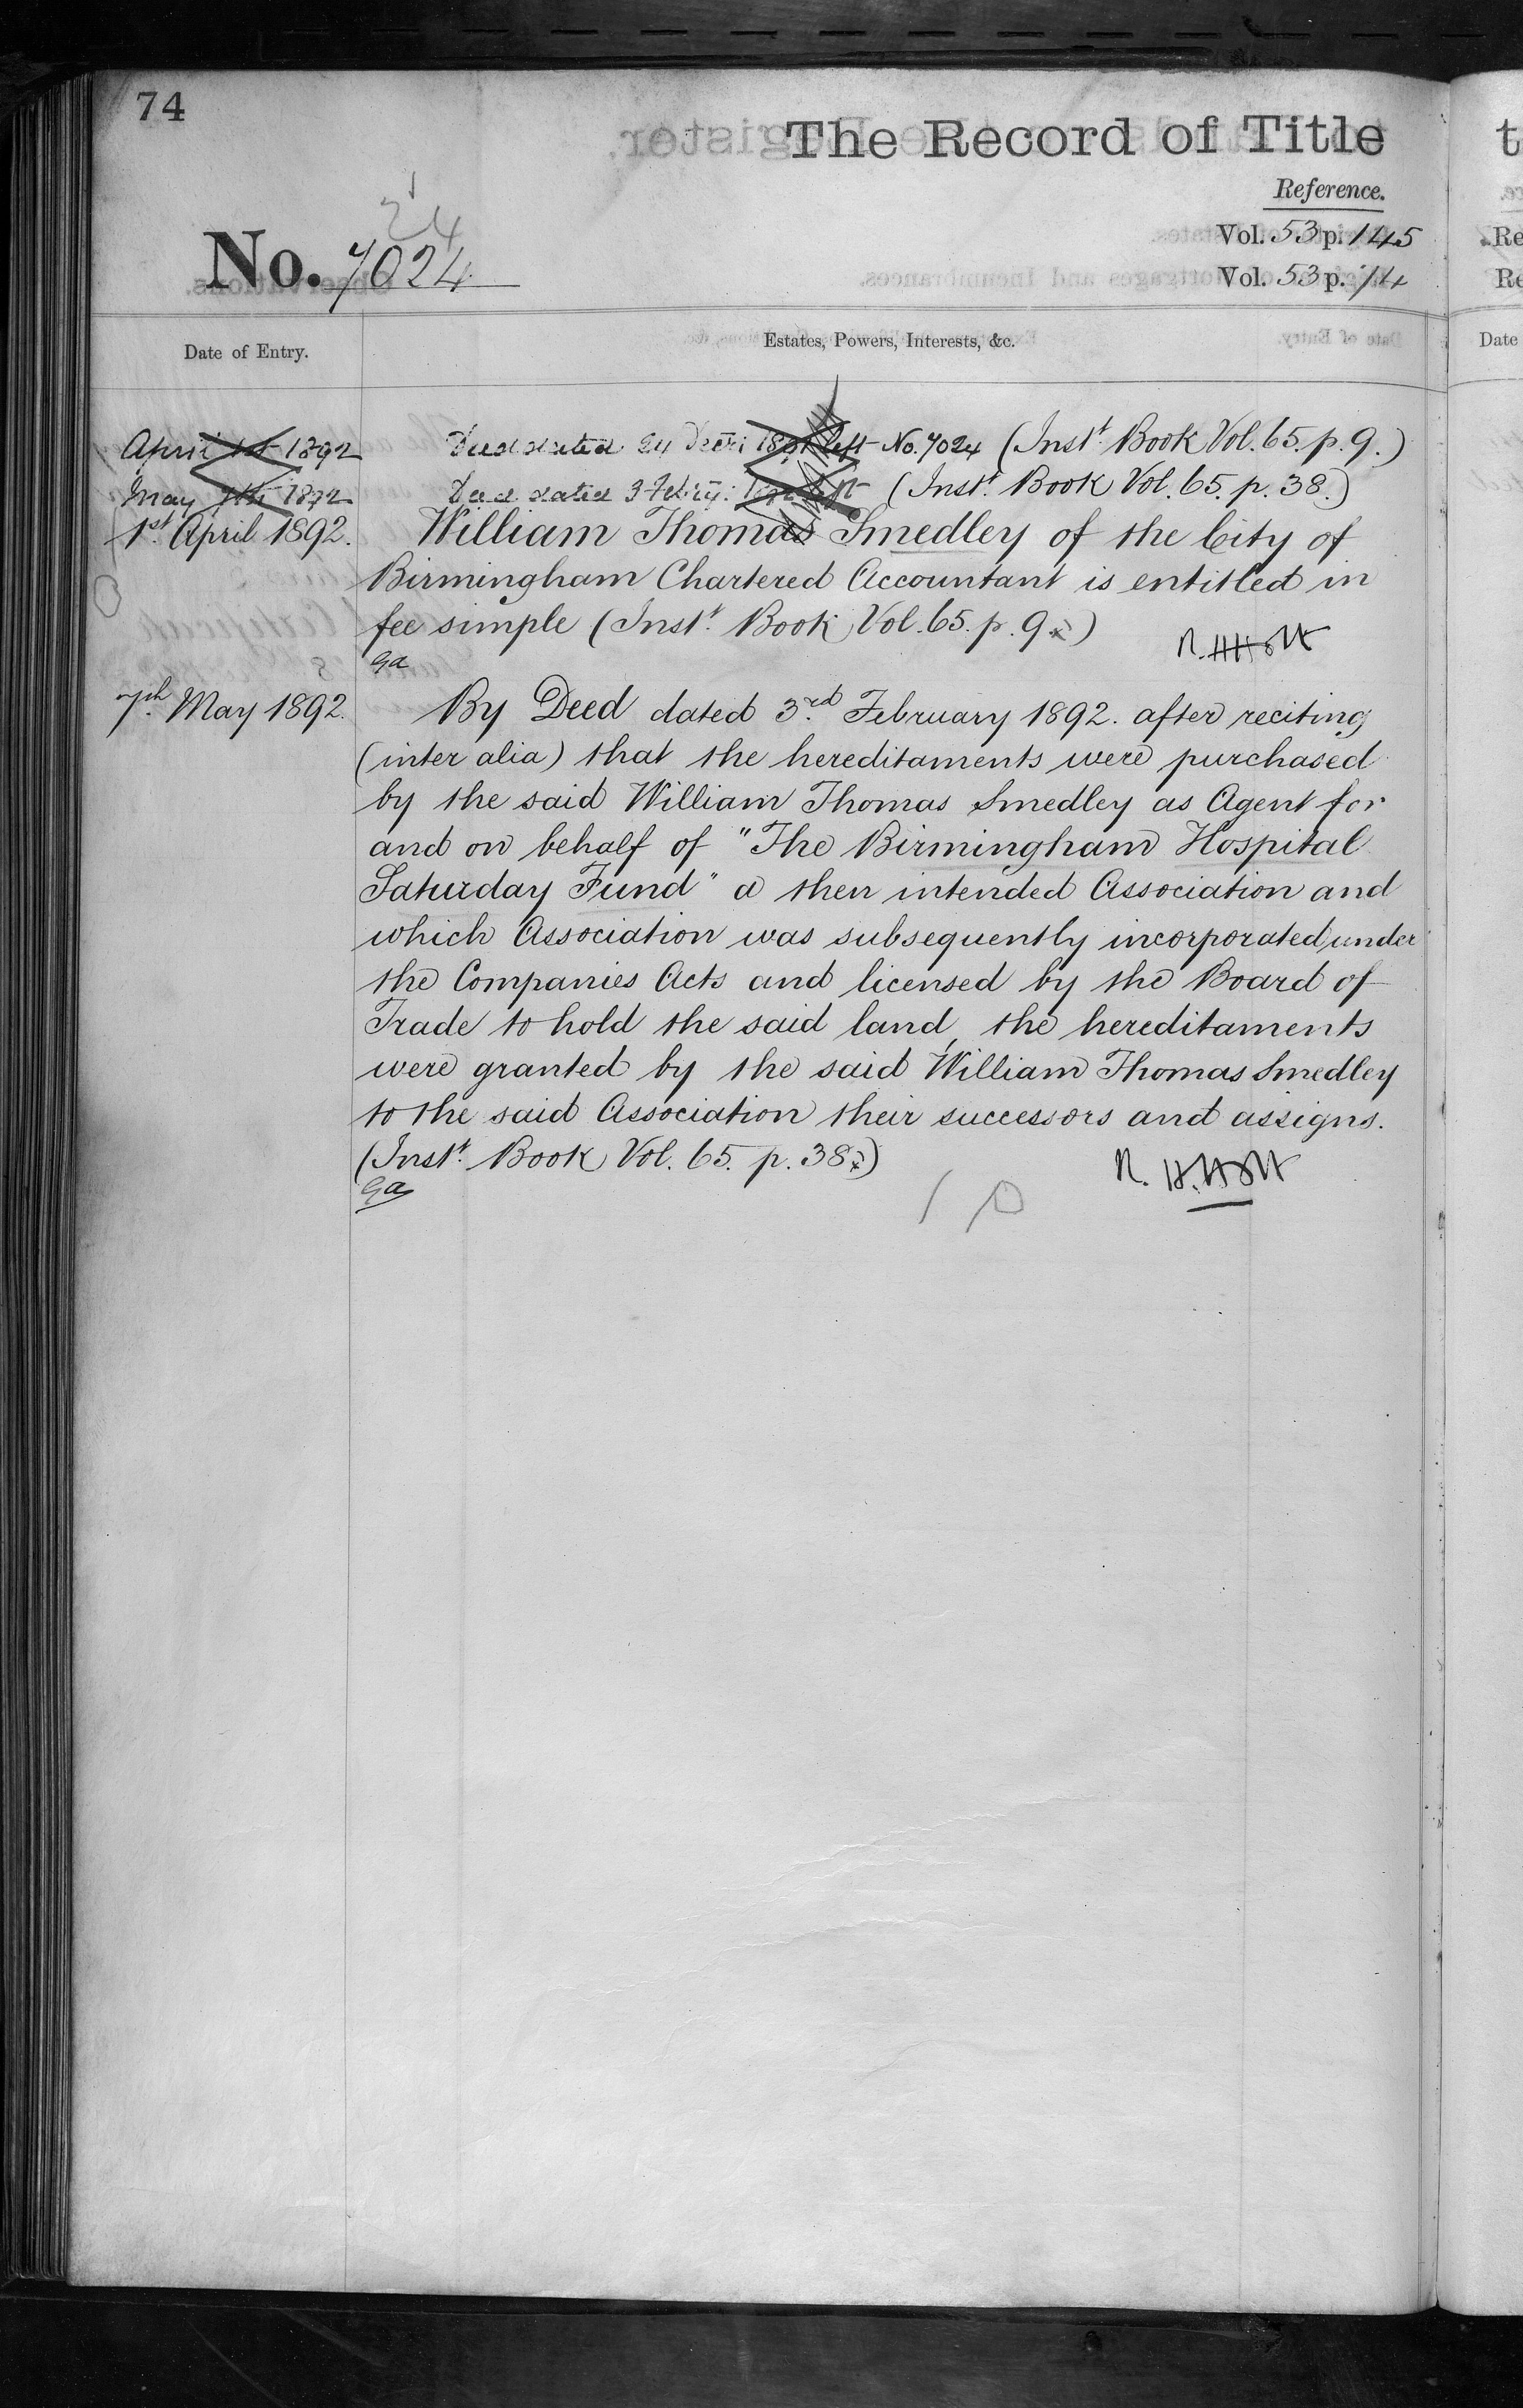 74
The Record of Title
Reference.
Vol. 53 p. 145
Vol. 53 p. 74
24
No. 7024
Date of Entry.
Estates, Powers, Interests, &c.
April 1st 1892
Deed dated 24 Decr: 1891 left No. 7024 (Instt. Book Vol. 65. p. 9.)
May 7th 1892
Deed dated 3 Febry: 1892 left (Instt. Book Vol. 65. p. 38.)
1st. April 1892.
William Thomas Smedley of the City of
Birmingham Chartered Accountant is entitled in
fee simple (Instt. Book Vol. 65. p. 9.)
7th. May 1892.
By Deed dated 3rd. February 1892. after reciting
(inter alia) that the hereditaments were purchased
by the said William Thomas Smedley as Agent for
and on behalf of "The Birmingham Hospital
Saturday Fund" a then intended Association and
which Association was subsequently incorporated under
the Companies Acts and licensed by the Board of
Trade to hold the said land, the hereditaments
were granted by the said William Thomas Smedley
to the said Association their successors and assigns.
(Instt. Book Vol. 65. p. 38.)
t
Re
Re
Date